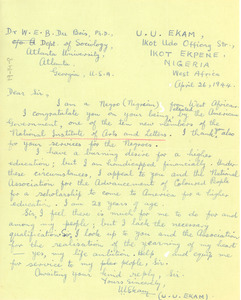 Dr W. E. B. Du Bois, Ph.D.,
c/o Dept of Sociology,
Atlanta University,
Atlanta,
Georgia, U.S.A.
U. U. EKAM,
Ikot Udo Offiong Str.,
IKOT EKPENE,
NIGERIA
West Africa
April 26, 1944.
Dear Sir,
I am a Negro (Nigerian) from West Africa.
I congratulate you on your being elected by the American
Government, one of the ten new members of the
National Institute of Arts and Letters. I thank also
for your services for the Negroes.
I have a burning desire for a higher
education; but I am handicapped financially. Under
these circumstances, I appeal to you and the National
Association for the Advancement of Coloured People
for a scholarship to come to America for a higher
education. I am 23 years of age.
Sir, I feel there is much for me to do for and
among my people; but I lack the necessary
qualification. So, I look up to you and the Association
for the realisation of the yearning of my heart
— yes, my life ambition. Help and equip me
for services to my people, Sir.
Awaiting your kind reply, Sir.
Yours Sincerely,
UUEkam
(U. U. EKAM)